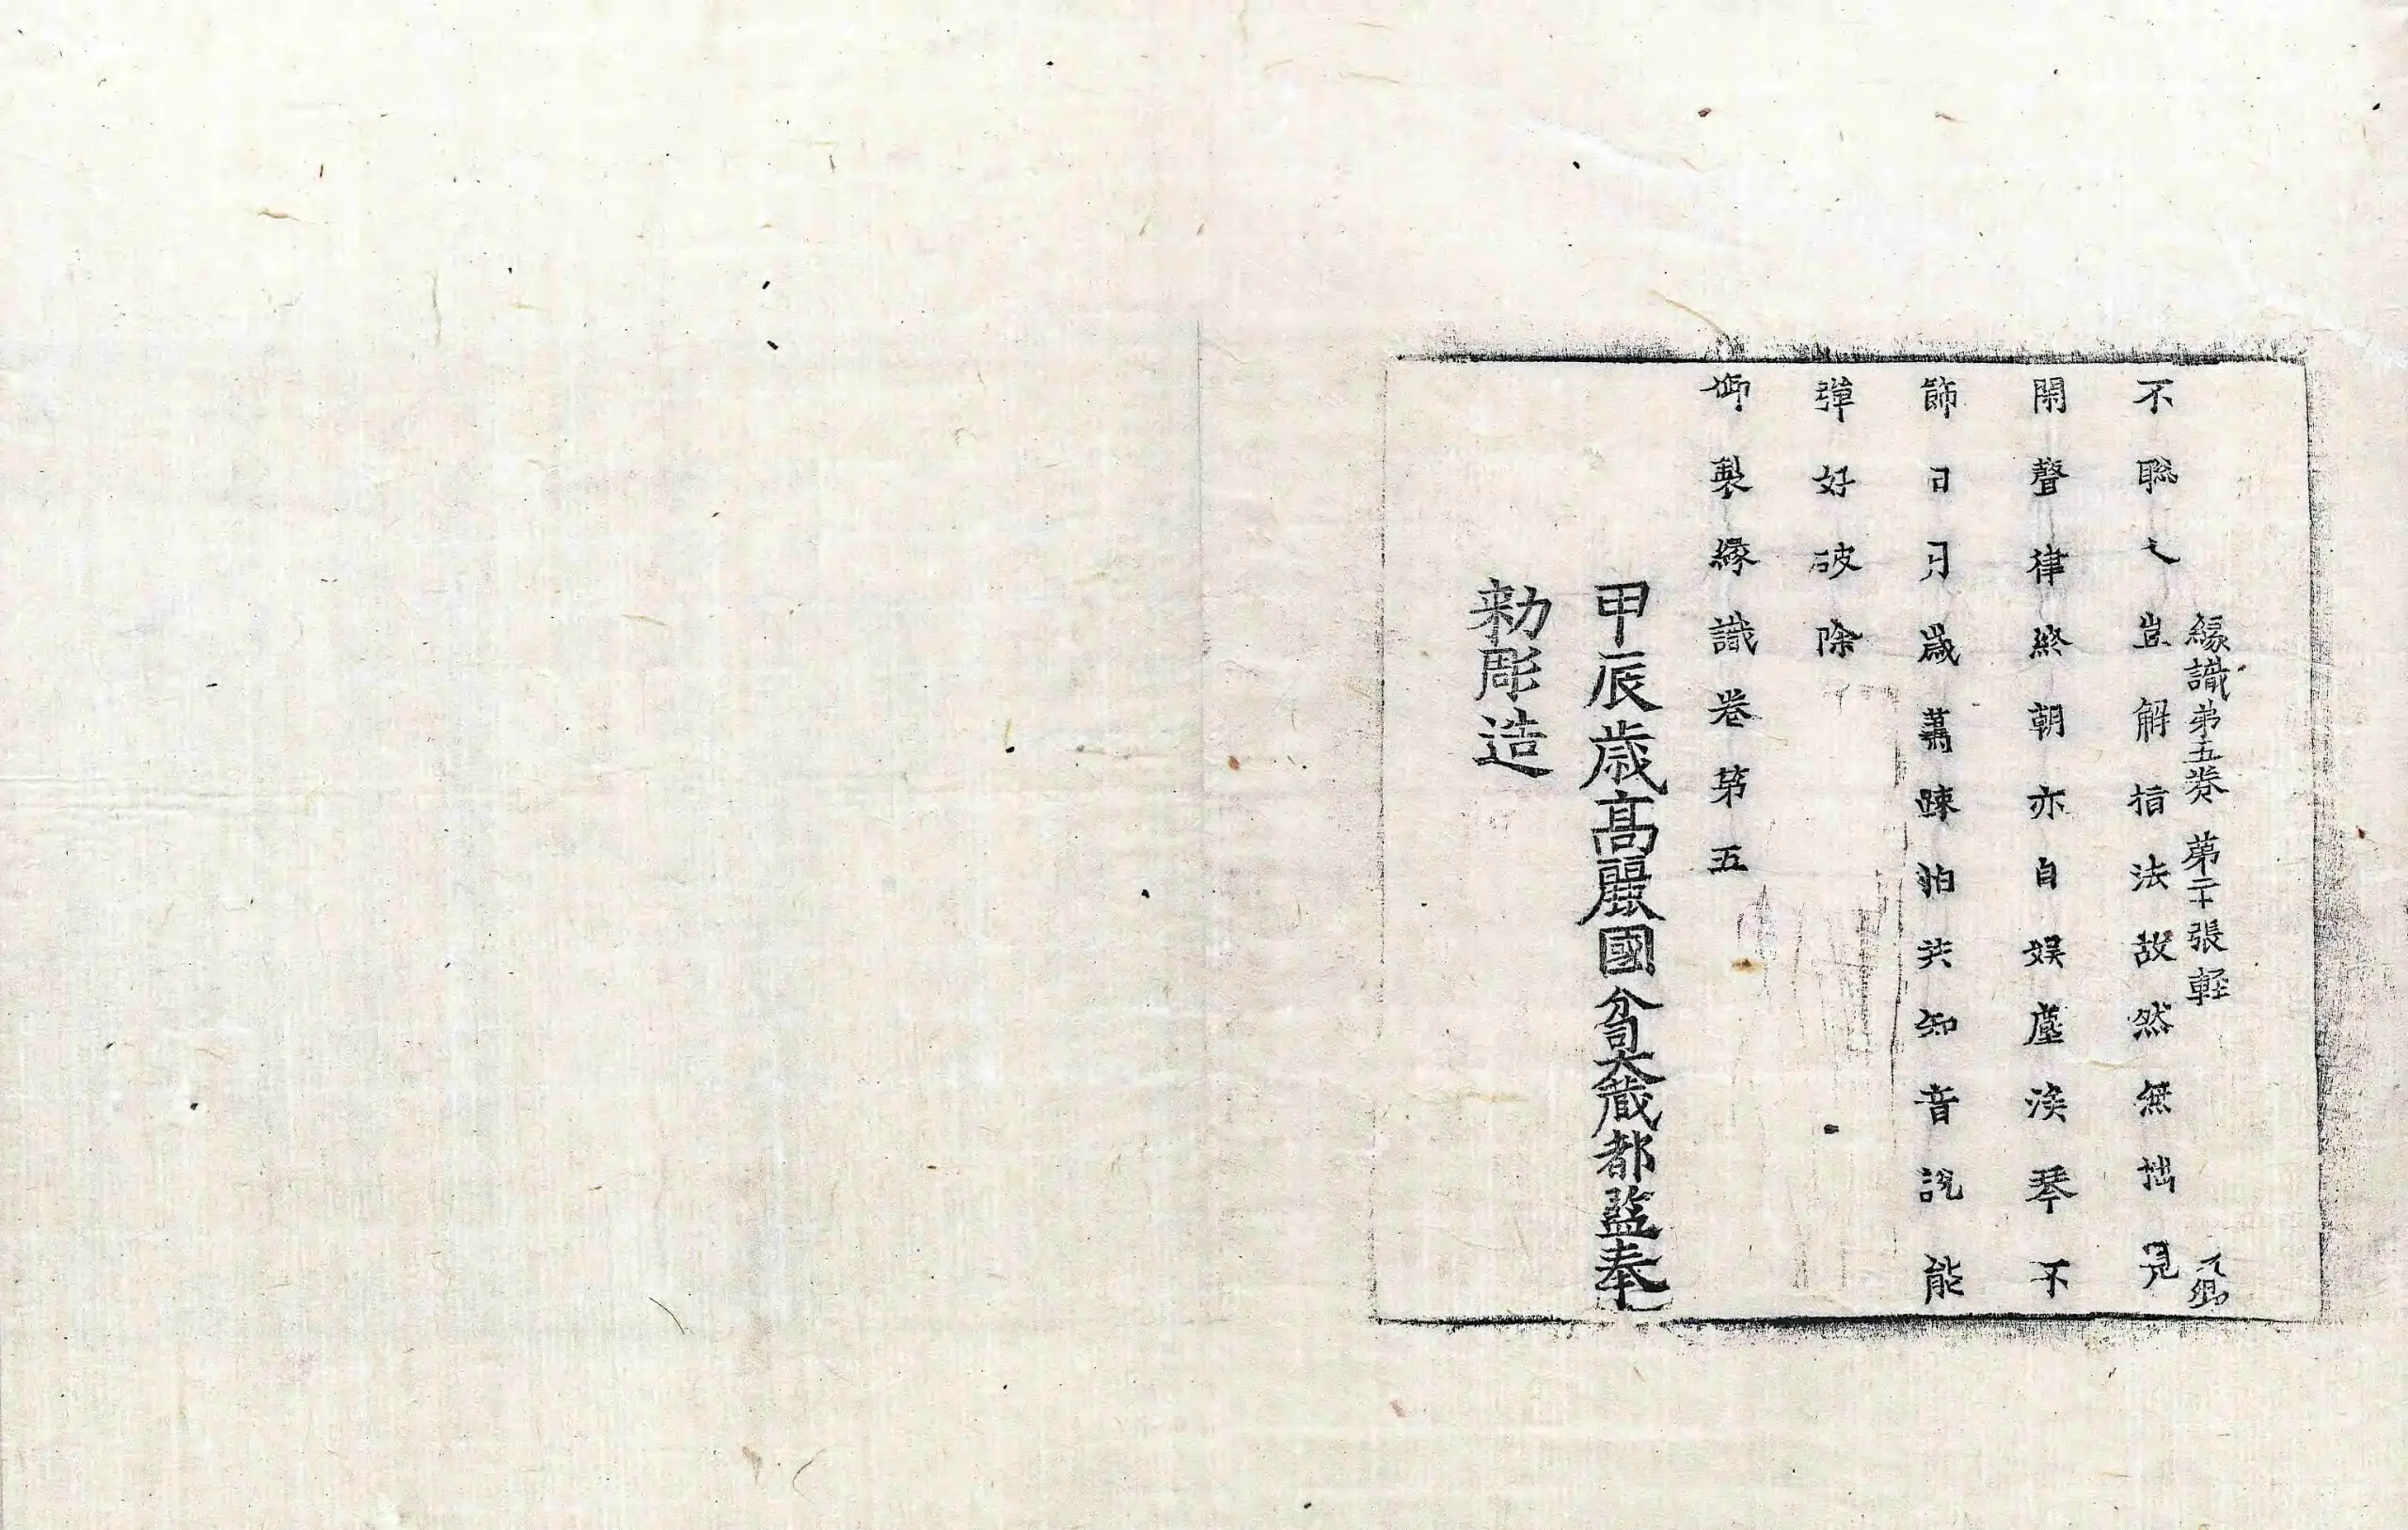 緣識第五卷 第二十張 輕 卿
不聦之豈解指法故然無拙見
閑聲律終朝亦自娛塵涘琴不
節日月歲蕭踈拍共知音說能
彈好破除
御製緣識卷第五
甲辰歲高麗國分司大藏都監奉
勅彫造